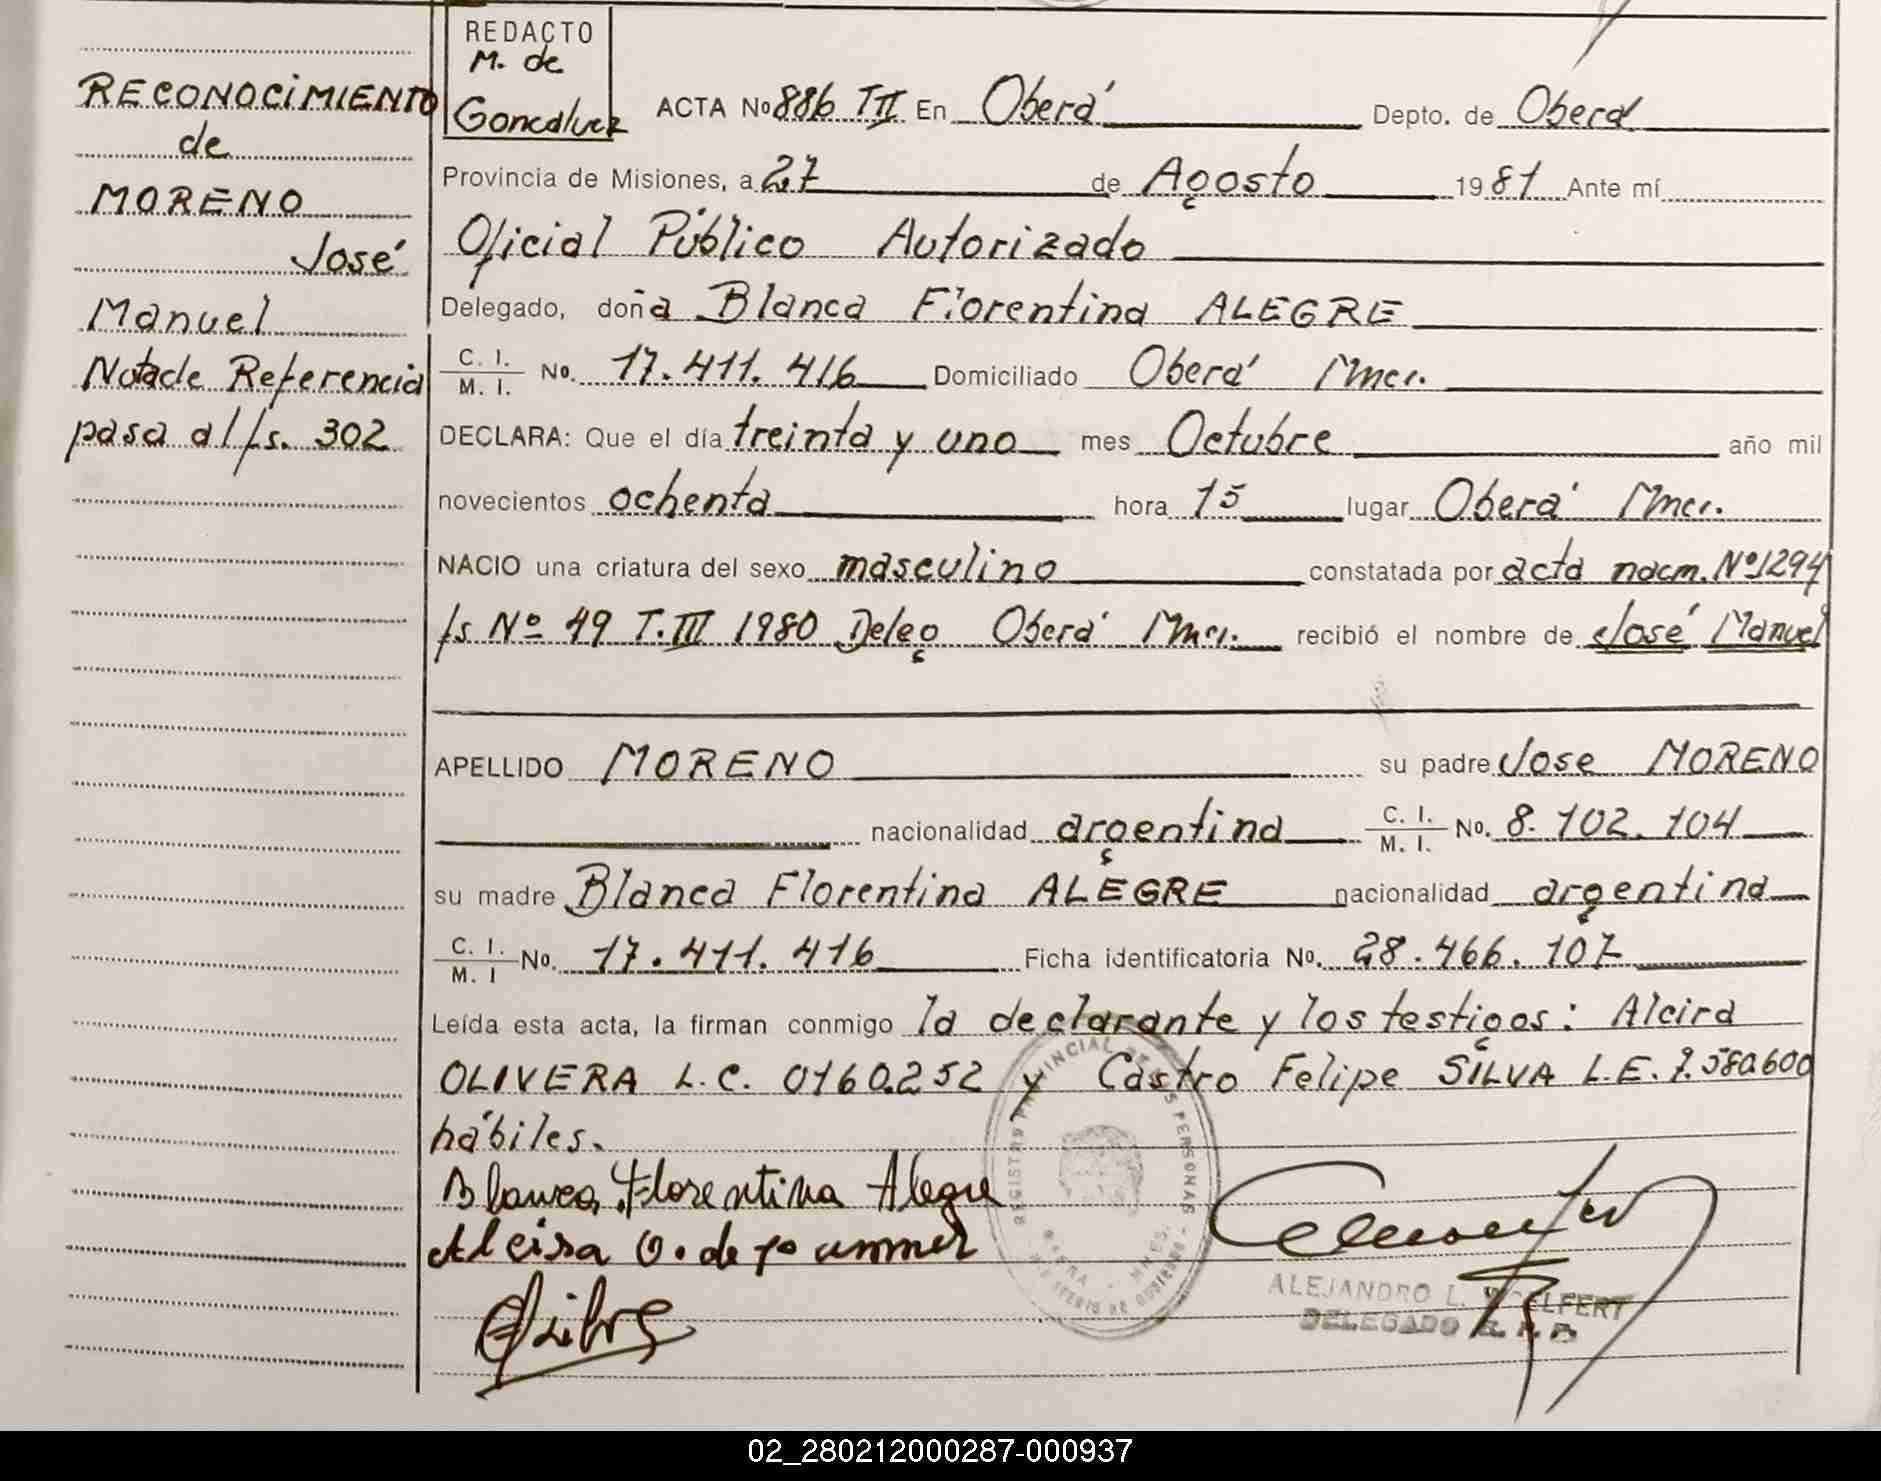 RECONOCIMIENTO
de
MORENO
José
Manuel
Nota de Referencia
pasa al fs. 302
REDACTO
M. de
Goncalvez
ACTA No 886 TII En Oberá Depto. de Oberá
Provincia de Misiones, a 27 de Agosto 1981 Ante mí
Oficial Público Autorizado
Delegado, doña Blanca Florentina ALEGRE
C. I. / M. I. No. 17.411.416 Domiciliado Oberá Mnes.
DECLARA: Que el día treinta y uno mes Octubre año mil
novecientos ochenta hora 15 lugar Oberá Mnes.
NACIO una criatura del sexo masculino constatada por acta nacm. Nº1294
fs Nº 49 T.III 1980 Deleg Oberá Mnes. recibió el nombre de José Manuel
APELLIDO MORENO su padre Jose MORENO
nacionalidad argentina C. I. / M. I. No. 8.102.104
su madre Blanca Florentina ALEGRE nacionalidad argentina
C. I. / M. I No. 17.411.416 Ficha identificatoria No. 28.466.107
Leída esta acta, la firman conmigo la declarante y los testigos: Alcira
OLIVERA L.C. 0160.252 y Castro Felipe SILVA L.E. 7.580.600
hábiles.
Blanca Florentina Alegre
Alcira O. de
REGISTRO PROVINCIAL DE LAS PERSONAS
OBERA - MNES.
MINISTERIO DE GOBIERNO
ALEJANDRO L. WOELFERT
DELEGADO R. P. P.
02_280212000287-000937